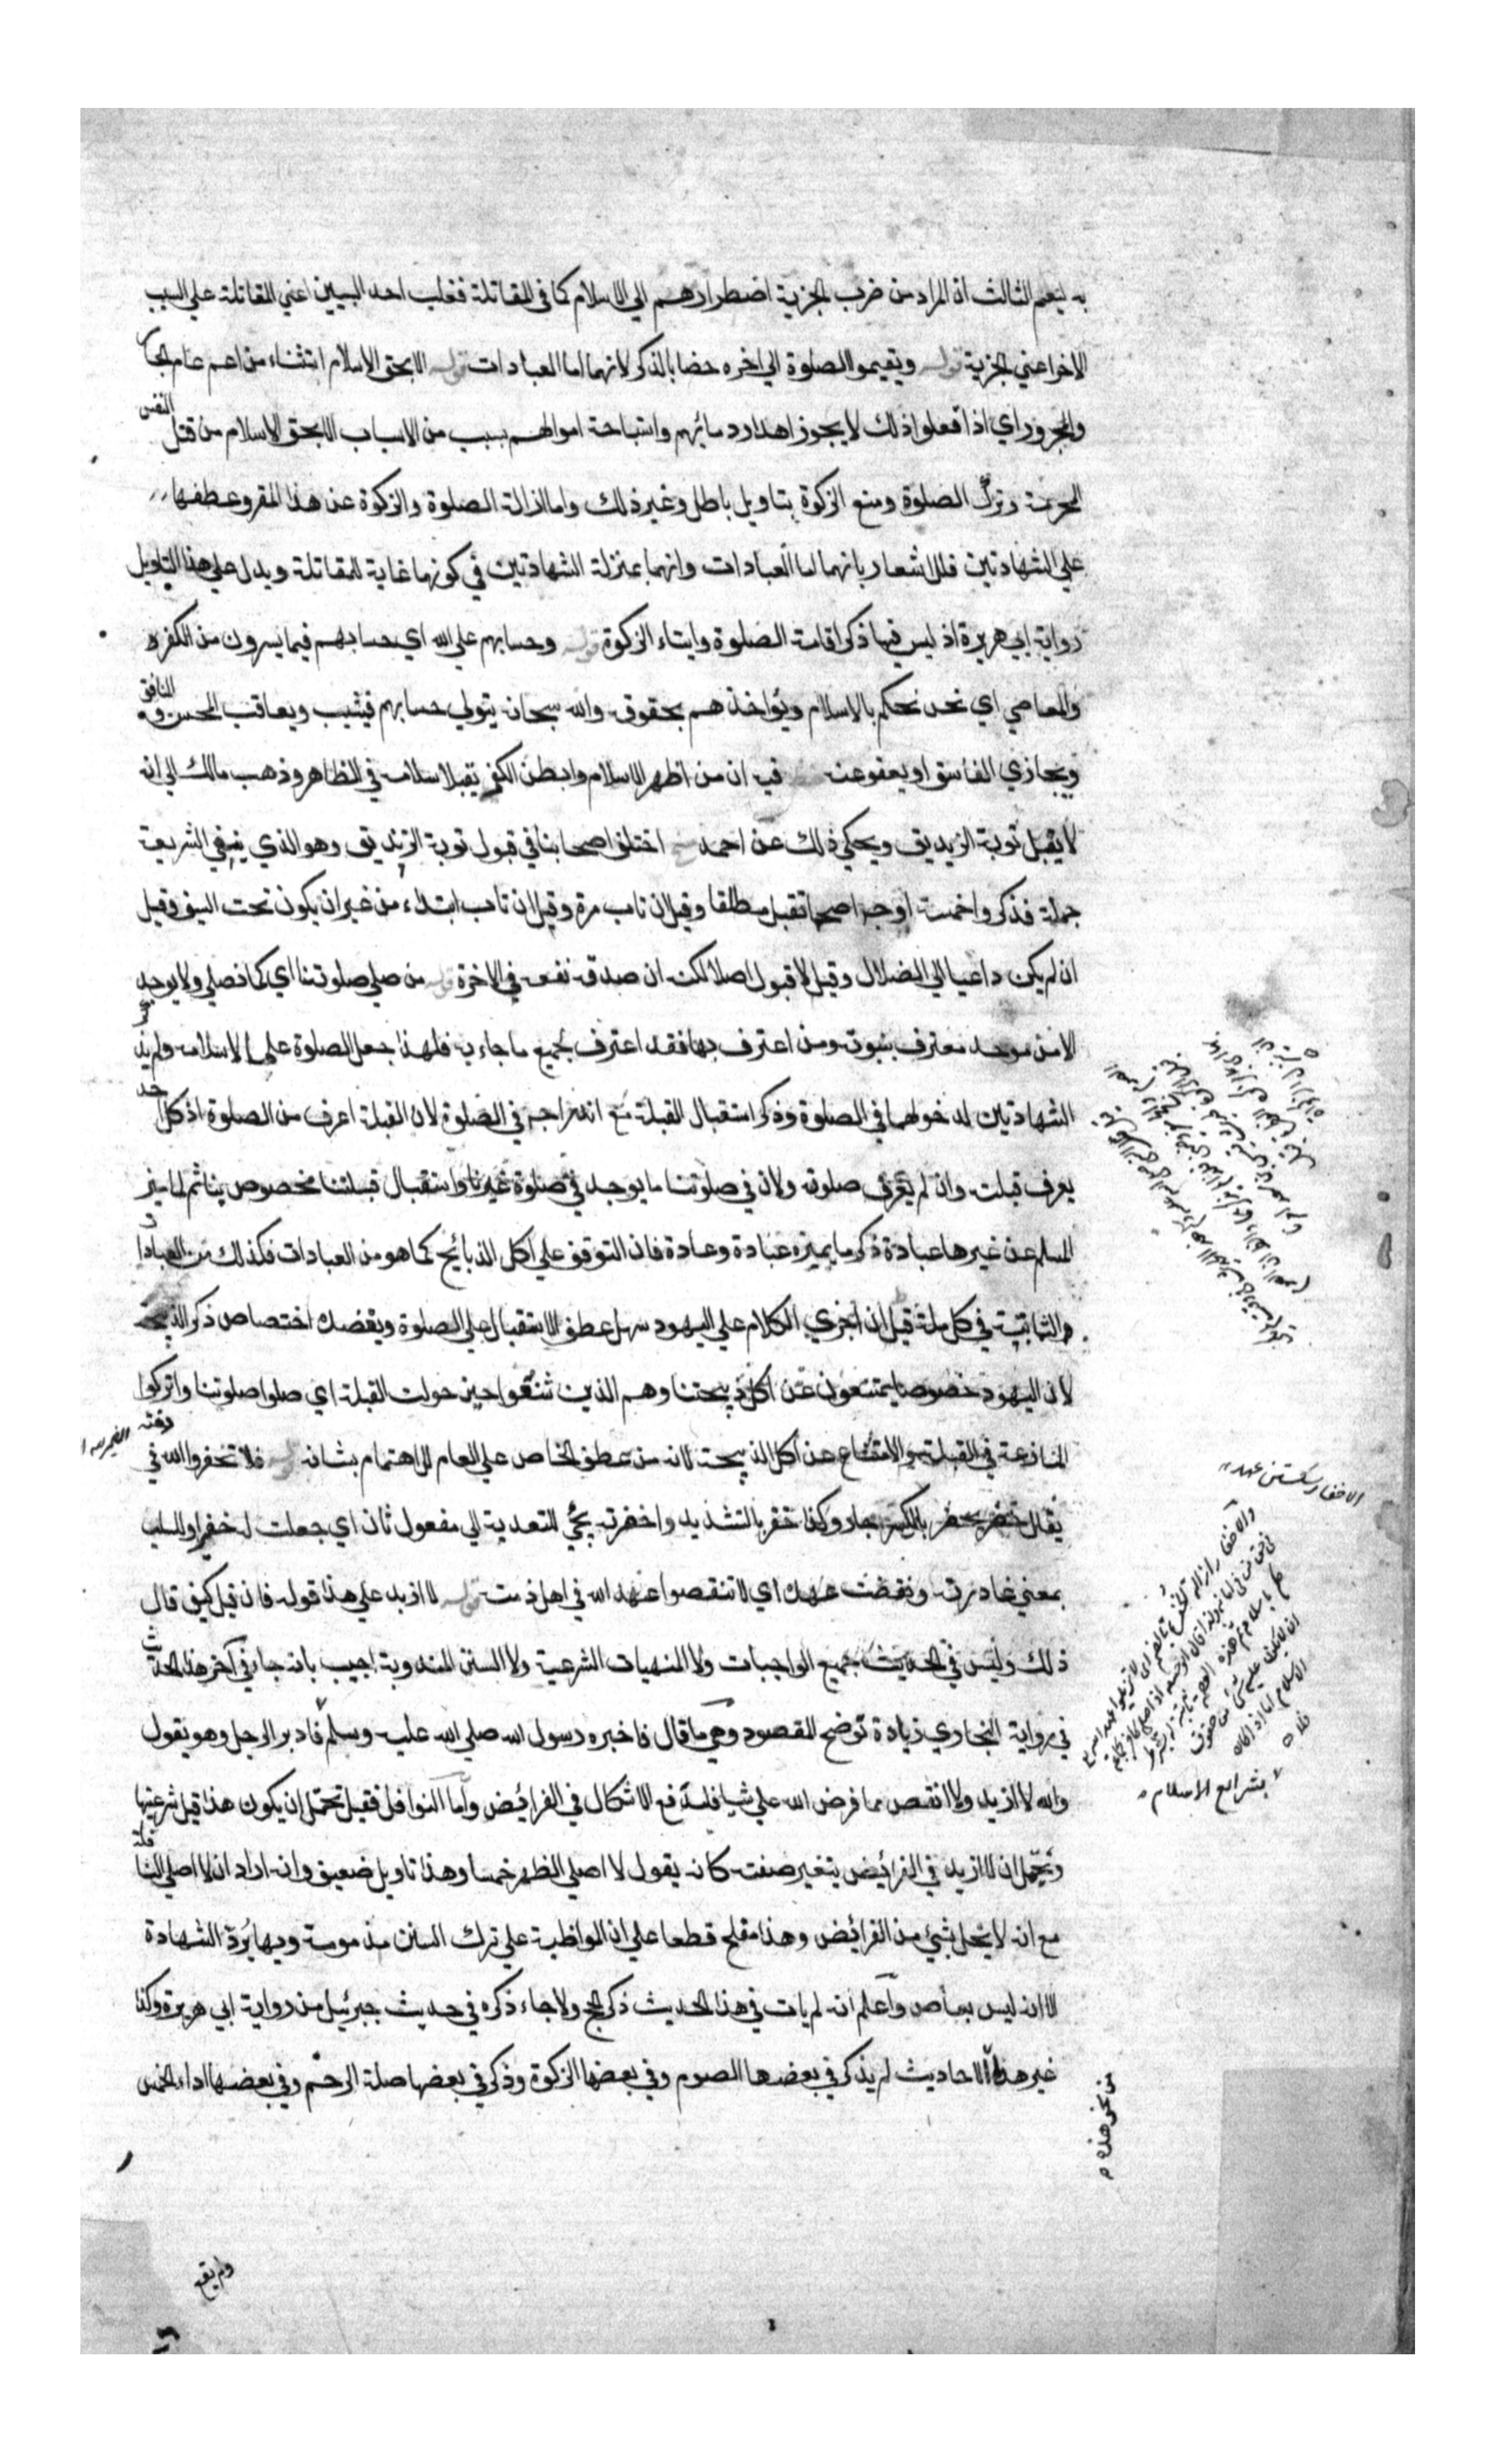 به ليعم الثالث ان المراد من ضرب الجزية اضطرارهم الي الاسلام كما في المقاتلة فغلب احد السببين اعني المقاتلة علي السبب
الاخر اعني الجزية قوله ويقيموا الصلوة الي اخره خصا بالذكر لانهما اما العبادات قوله الا بحق الاسلام استثناء من اعم عام الجار
والمجرور اي اذا فعلوا ذلك لا يجوز اهدار دمائهم واستباحة اموالهم بسبب من الاسباب الا بحق الاسلام من قتل النفس
المحرمة وترك الصلوة ومنع الزكوة بتاويل باطل وغير ذلك واما ازالة الصلوة والزكوة عن هذا المقر وعطفها
علي الشهادتين فللاشعار بانهما اما العبادات وانهما بمنزلة الشهادتين في كونهما غاية للمقاتلة ويدل علي هذا التاويل
رواية ابي هريرة اذ ليس فيها ذكر اقامة الصلوة وايتاء الزكوة قوله وحسابهم علي الله اي حسابهم فيما يسرون من الكفر
والمعاصي اي نحن نحكم بالاسلام ونؤاخذهم بحقوقه والله سبحانه يتولي حسابهم فيثيب ويعاقب المحسن و المنافق
ويجازي الفاسق او يعفو عنه فيه ان من اظهر الاسلام وابطن الكفر يقبل اسلامه في الظاهر وذهب مالك الي انه
لا يقبل توبة الزنديق ويحكي ذلك عن احمد اختلف اصحابنا في قبول توبة الزنديق وهو الذي ينفي الشريعة
جملة فذكروا خمسة اوجه اصحها تقبل مطلقا وقيل ان تاب مرة وقيل ان تاب ابتداء من غير ان يكون تحت السيف وقيل
ان لم يكن داعيا الي الضلال وقيل لا قبول اصلا لكنه ان صدق نفعه في الاخرة قوله من صلي صلوتنا اي كما نصلي ولا يوجد
الا من موحد معترف بنبوته ومن اعترف بها فقد اعترف بجميع ما جاء به فلهذا جعل الصلوة علي الاسلامه ولم يذكر
الشهادتين لدخولهما في الصلوة وذكر استقبال القبلة مع اندراجه في الصلوة لان القبلة اعرف من الصلوة اذ كل احد
يعرف قبلته وان لم يعرف صلوته ولان في صلوتنا ما يوجد في صلوة غيرنا واستقبال قبلتنا مخصوص بنا ثم لما ميز
المسلم عن غيره عبادة ذكر ما يميزه عبادة وعادة فان التوقف علي اكل الذبائح كما هو من العبادات فكذلك من العادات
والثابتة في كل ملة قيل ان اجري الكلام علي اليهود سهل عطف الاستقبال علي الصلوة ويعضده اختصاص ذكر الذبيحة
لان اليهود خصوصا يمتنعون عن اكل ذبيحتنا وهم الذين شنعوا حين حولت القبلة اي صلوا صلوتنا واتركوا
المنازعة في القبلة والامتناع عن اكل الذبيحة لانه من عطف الخاص علي العام للاهتمام بشانه قوله فلا تخفروا الله في ذمته
يقال خفر يخفر بالكسر جار وكذا خفر بالتشديد واخفرته يجئ للتعدية الي مفعول ثان اي جعلت له خفيرا وللسلب
بمعني غادرته ونقضت عهده اي لا تنقصوا عهد الله في اهل ذمته قوله لا ازيد علي هذا قوله فان قيل كيف قال
ذلك وليس في الحديث جميع الواجبات ولا المنهيات الشرعية ولا السنن المندوبة اجيب بانه جاء في آخر هذا الحديث
في رواية البخاري زيادة توضح المقصود وهي ما قال فاخبره رسول الله صلي الله عليه وسلم فادبر الرجل وهو يقول
والله لا ازيد ولا انقص مما فرض الله علي شيا فاندفع الاشكال في الفرائض واما النوافل فقيل تحتمل ان يكون هذا قبل شرعيتها
ويحتمل ان لا ازيد في الفرائض بتغير صفته كانه يقول لا اصلي الظهر خمسا وهذا تاويل ضعيف وانه اراد ان لا اصلي النافلة
مع انه لا يخل بشئ من الفرائض وهذا مفلح قطعا علي ان المواظبة علي ترك السنن مذمومة وبها يرد الشهادة
الا انه ليس بعاص واعلم انه لم يات في هذا الحديث ذكر الحج ولا جاء ذكره في حديث جبرئيل من رواية ابي هريرة وكذا
غير هذا الاحاديث لم يذكر في بعضها الصوم وفي بعضها الزكوة وذكر في بعضها صلة الرحم وفي بعضها اداء الخمس
الاخفار شكستن عهد
بشرايع الاسلام
من نحو هذه
ولم يقع